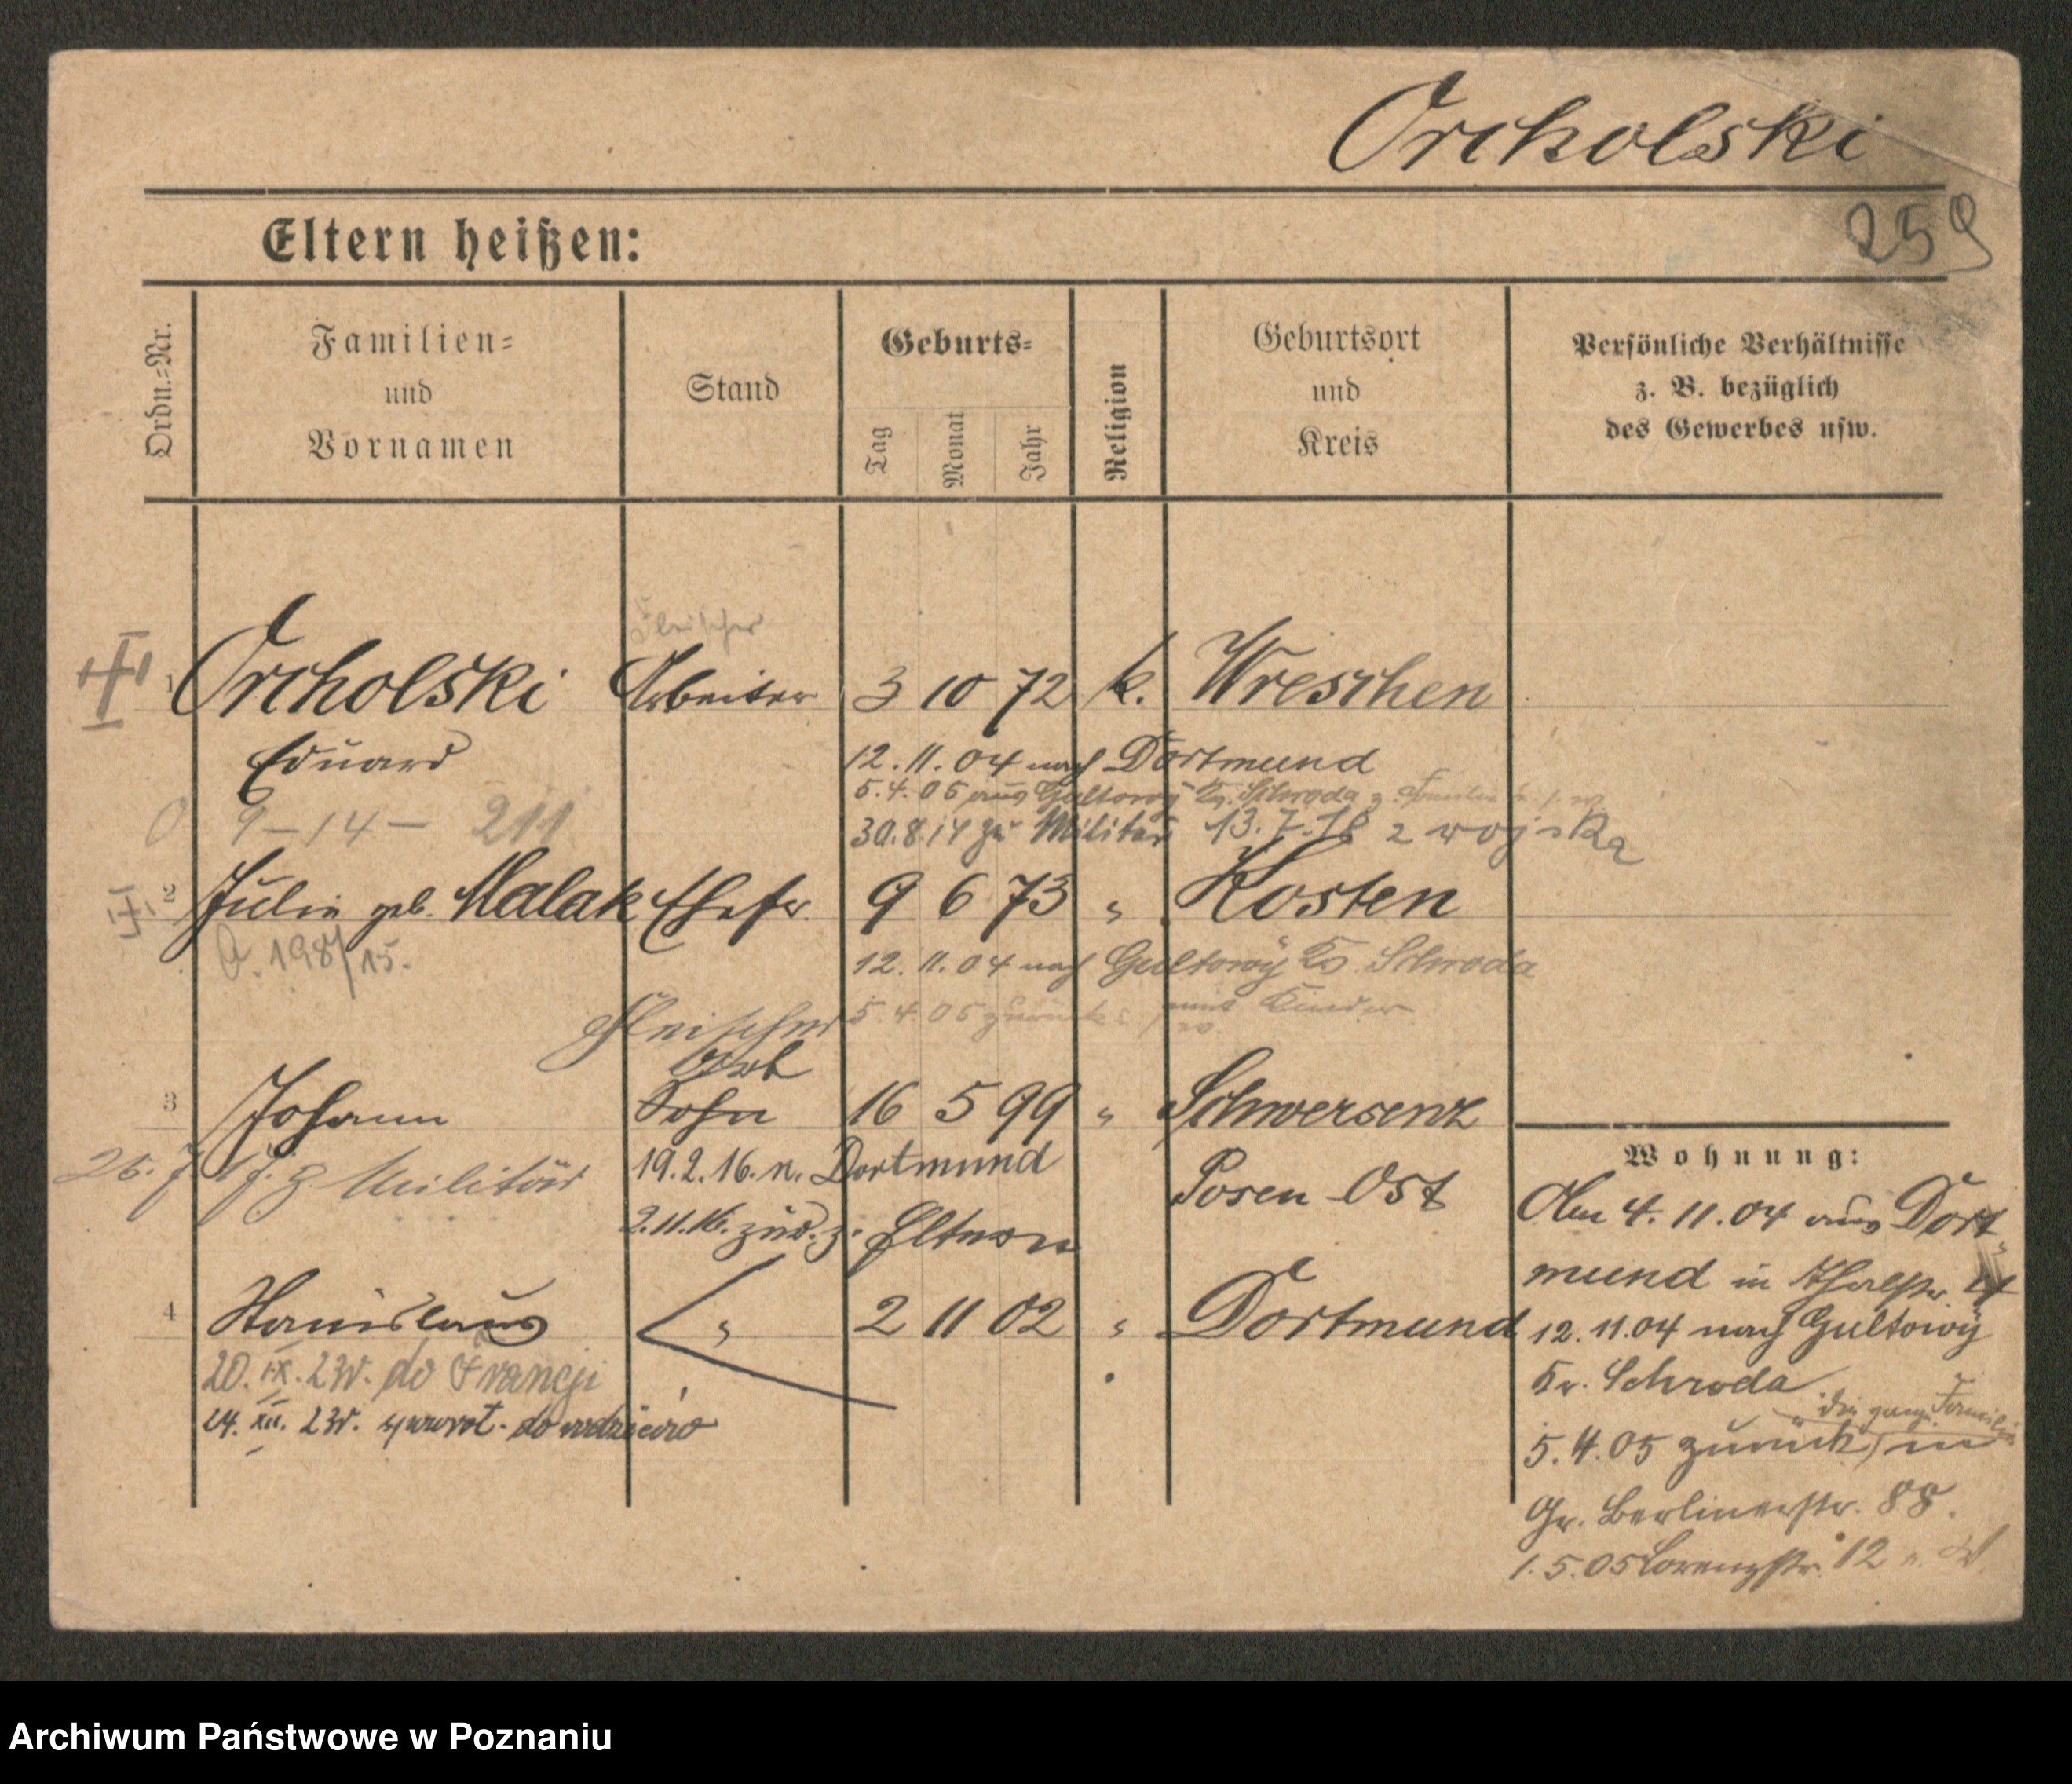 Orcholski
259
Eltern heißen:
Ordn.=Nr.
Familien=
und
Vornamen
Stand
Geburts=
Tag
Monat
Jahr
Religion
Geburtsort
und
Kreis
Persönliche Verhältnisse
z. B. bezüglich
des Gewerbes usw.
Fleischer
1 Orcholski Arbeiter 3 10 72 k. Wreschen
Eduard
12. 11. 04 nach Dortmund
5. 4. 05 aus Gultowÿ Kr. Schroda z. Familie
9-14- 211
30.8.14 zu Militär 13.7.18 z wojska
2 Julie geb. Malak Ehefr. 9 6 73 " Kosten
A. 198/15.
12. 11. 04 nach Gultowÿ Kr. Schroda
5. 4. 05 zurück mit Kinder
Fleischer
Arb
3 Johann Sohn 16 5 99 " Schwersenz
z. Militär
19. 2. 16. n. Dortmund
Posen Ost
2. 11. 16. zur. z. Eltern
4 Stanislaus " 2 11 02 " Dortmund
20. IX. 23r. do Francji
24. XII. 23r. powrot. do rodziców
Wohnung:
Am 4. 11. 04 aus Dort=
mund in Thalstr.
12. 11. 04 nach Gultowÿ
Kr. Schroda
die ganze Familie
5. 4. 05 zurück in
Gr. Berlinerstr. 88.
1. 5. 05 Lorenzstr. 12
Archiwum Państwowe w Poznaniu